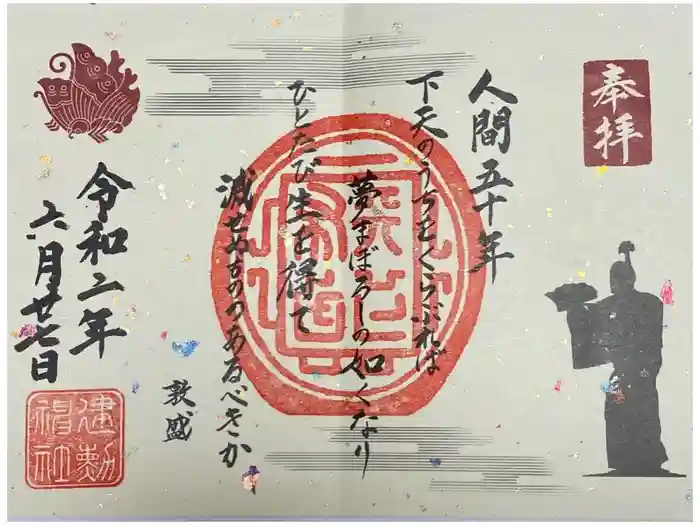 奉拝
人間五十年
下天のうちをくらぶれば
夢まぼろしの如くなり
ひとたび生を得て
滅せぬもののあるべきか
敦盛
令和二年
六月廿七日
建勲
神社